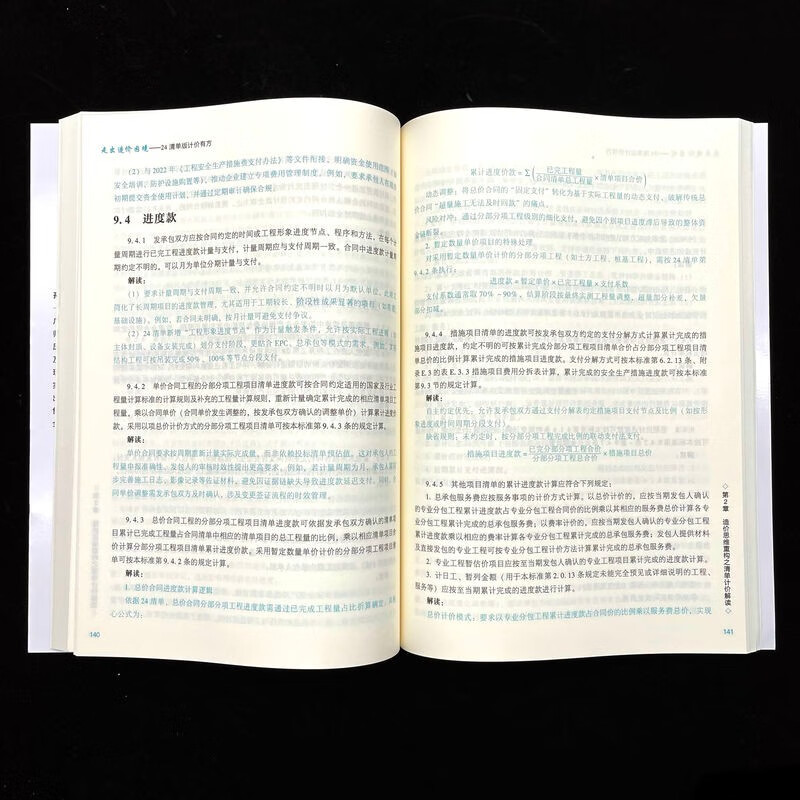 走出造价困境——24 清单版计价有方
（2）与 2022 年《工程安全生产措施费支付办法》等文件衔接，明确资金使用范围
安全培训、防护设施购置等），推动企业建立专项费用管理制度。例如，要求承包人在项目
初期提交资金使用计划，并通过定期审计确保合规。
9.4 进度款
9.4.1 发承包双方应按合同约定的时间或工程形象进度节点、程序和方法，在每个计
量周期进行已完工程进度计量与支付，计量周期应与支付周期一致。合同中进度款计量周
期约定不明的，可以月为单位分期计量与支付。
解读：
（1）要求计量周期与支付周期一致，并允许合同约定不明时以月为默认单位。此
简化了长周期项目的进度款管理，尤其适用于工期较长、阶段性成果显著的
基础设施）。例如，若合同未明确，按月计量可避免支付争议。
（2）24 清单新增“工程形象进度节点”作为计量触发条件，允许按实际工程进度（
主体封顶、设备安装完成）划分支付阶段，更贴合 EPC、总承包等模式的需求。例如，
结构工程可按吊装完成 50%、100% 等节点分段支付。
9.4.2 单价合同工程的分部分项工程项目清单进度款可按合同约定适用的国家及行业工
程量计算标准的计算规则及补充的工程量计算规则，重新计量确定累计完成的相应清单项目工
程量，乘以合同单价（合同单价发生调整的，按发承包双方确认的调整单价）计算累计进度
款。采用以项总价计价方式的分部分项工程项目清单可按本标准第 9.4.3 条的规定计算。
解读：
单价合同要求按周期重新计量实际完成量，而非依赖投标清单预估值。这对承包人的工
程量申报准确性、发包人的审核时效性提出更高要求。例如，若计量周期为月，承包人需同
步完善施工日志、影像记录等佐证材料，避免因证据链缺失导致进度款延迟支付。同时，
同单价调整需发承包双方及时确认，涉及变更签证流程的时效管理。
9.4.3 总价合同工程的分部分项工程项目清单进度款可依据发承包双方确认的清单项
目累计已完成工程量占合同清单中相应的清单项目的总工程量的比例，乘以相应清单项目合
价计算分部分项工程项目清单累计进度款。采用暂定数量单价计价的分部分项工程项目清
单可按本标准第 9.4.2 条的规定计算。
解读：
1. 总价合同进度款计算逻辑
依据 24 清单，总价合同分部分项工程进度款需通过已完成工程量占比折算确定，
心公式为：
140
累计进度价款＝∑（已完工程量/合同清单总工程量×清单项目合价）
动态调整：将总价合同的“固定支付”转化为基于实际工程量的动态支付，破解传统总
价合同“超量施工无法及时回款”的痛点。
风险对冲：通过分部分项工程级别的细化支付，避免因个别项目进度滞后导致的整体资
金链断裂。
2. 暂定数量单价项目的特殊处理
对采用暂定数量单价计价的分部分项工程（如土方工程、桩基工程），需按 24 清单第
9.4.2 条执行：
进度款＝暂定单价×已完工程量×支付系数
支付系数通常取 70%~90%，结算阶段按最终实测工程量调整，超量部分补差，欠量
部分扣减。
9.4.4 措施项目清单的进度款可按发承包双方约定的支付分解方式计算累计完成的措
施项目进度款，约定不明的可按累计完成分部分项工程项目清单合价占分部分项工程项目清
单总价的比例计算累计完成的措施项目进度款。支付分解方式可按本标准第 6.2.13 条、附
录 E.3 的表 E.3.3 措施项目费用分拆表计算。累计完成的安全生产措施项目进度款可按本标准
第 9.3 节的规定计算。
解读：
自主约定优先：允许发承包双方通过支付分解表约定措施项目支付节点及比例（如按形
象进度或时间周期分段支付）。
缺省规则：未约定时，按分部分项工程完成比例的联动支付法支付。
措施项目进度款＝已完分部分项工程合价/分部分项工程总合价×措施项目总价
9.4.5 其他项目清单的累计进度款计算应符合下列规定：
1. 总承包服务费应按服务事项的计价方式计算。以总价计价的，应按当期发包人确认
的专业分包工程累计进度款占专业分包工程合同价的比例乘以其相应的服务费总价计算各专
业分包工程累计完成的总承包服务费；以费率计价的，应按当期发包人确认的专业分包工程
累计进度款乘以相应的费率计算各专业分包工程累计完成的总承包服务费；发包人提供材料
及直接发包的专业工程可按专业分包工程计价方法计算累计完成的总承包服务费。
2. 专业工程暂估价项目应按应当期发包人确认的专业工程项目累计完成的进度款计算。
3. 计日工、暂列金额（用于本标准第 2.0.13 条规定未能完全预见或详细说明的工程、
服务等）应按至当期累计完成的进度款进行计算。
解读：
总价计价模式：要求以专业分包工程累计进度款占合同价的比例乘以服务费总价，实现
第2章 造价思维重构之清单计价解读
141